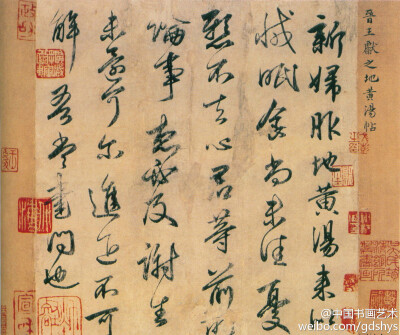 晉王獻之地黃湯帖
新婦服地黃湯來
減眠食尚未佳憂
懸不去心君等前
論事想必及謝生
未還可爾進退不可
解吾當書問也
@中国书画艺术
weibo.com/gdshys